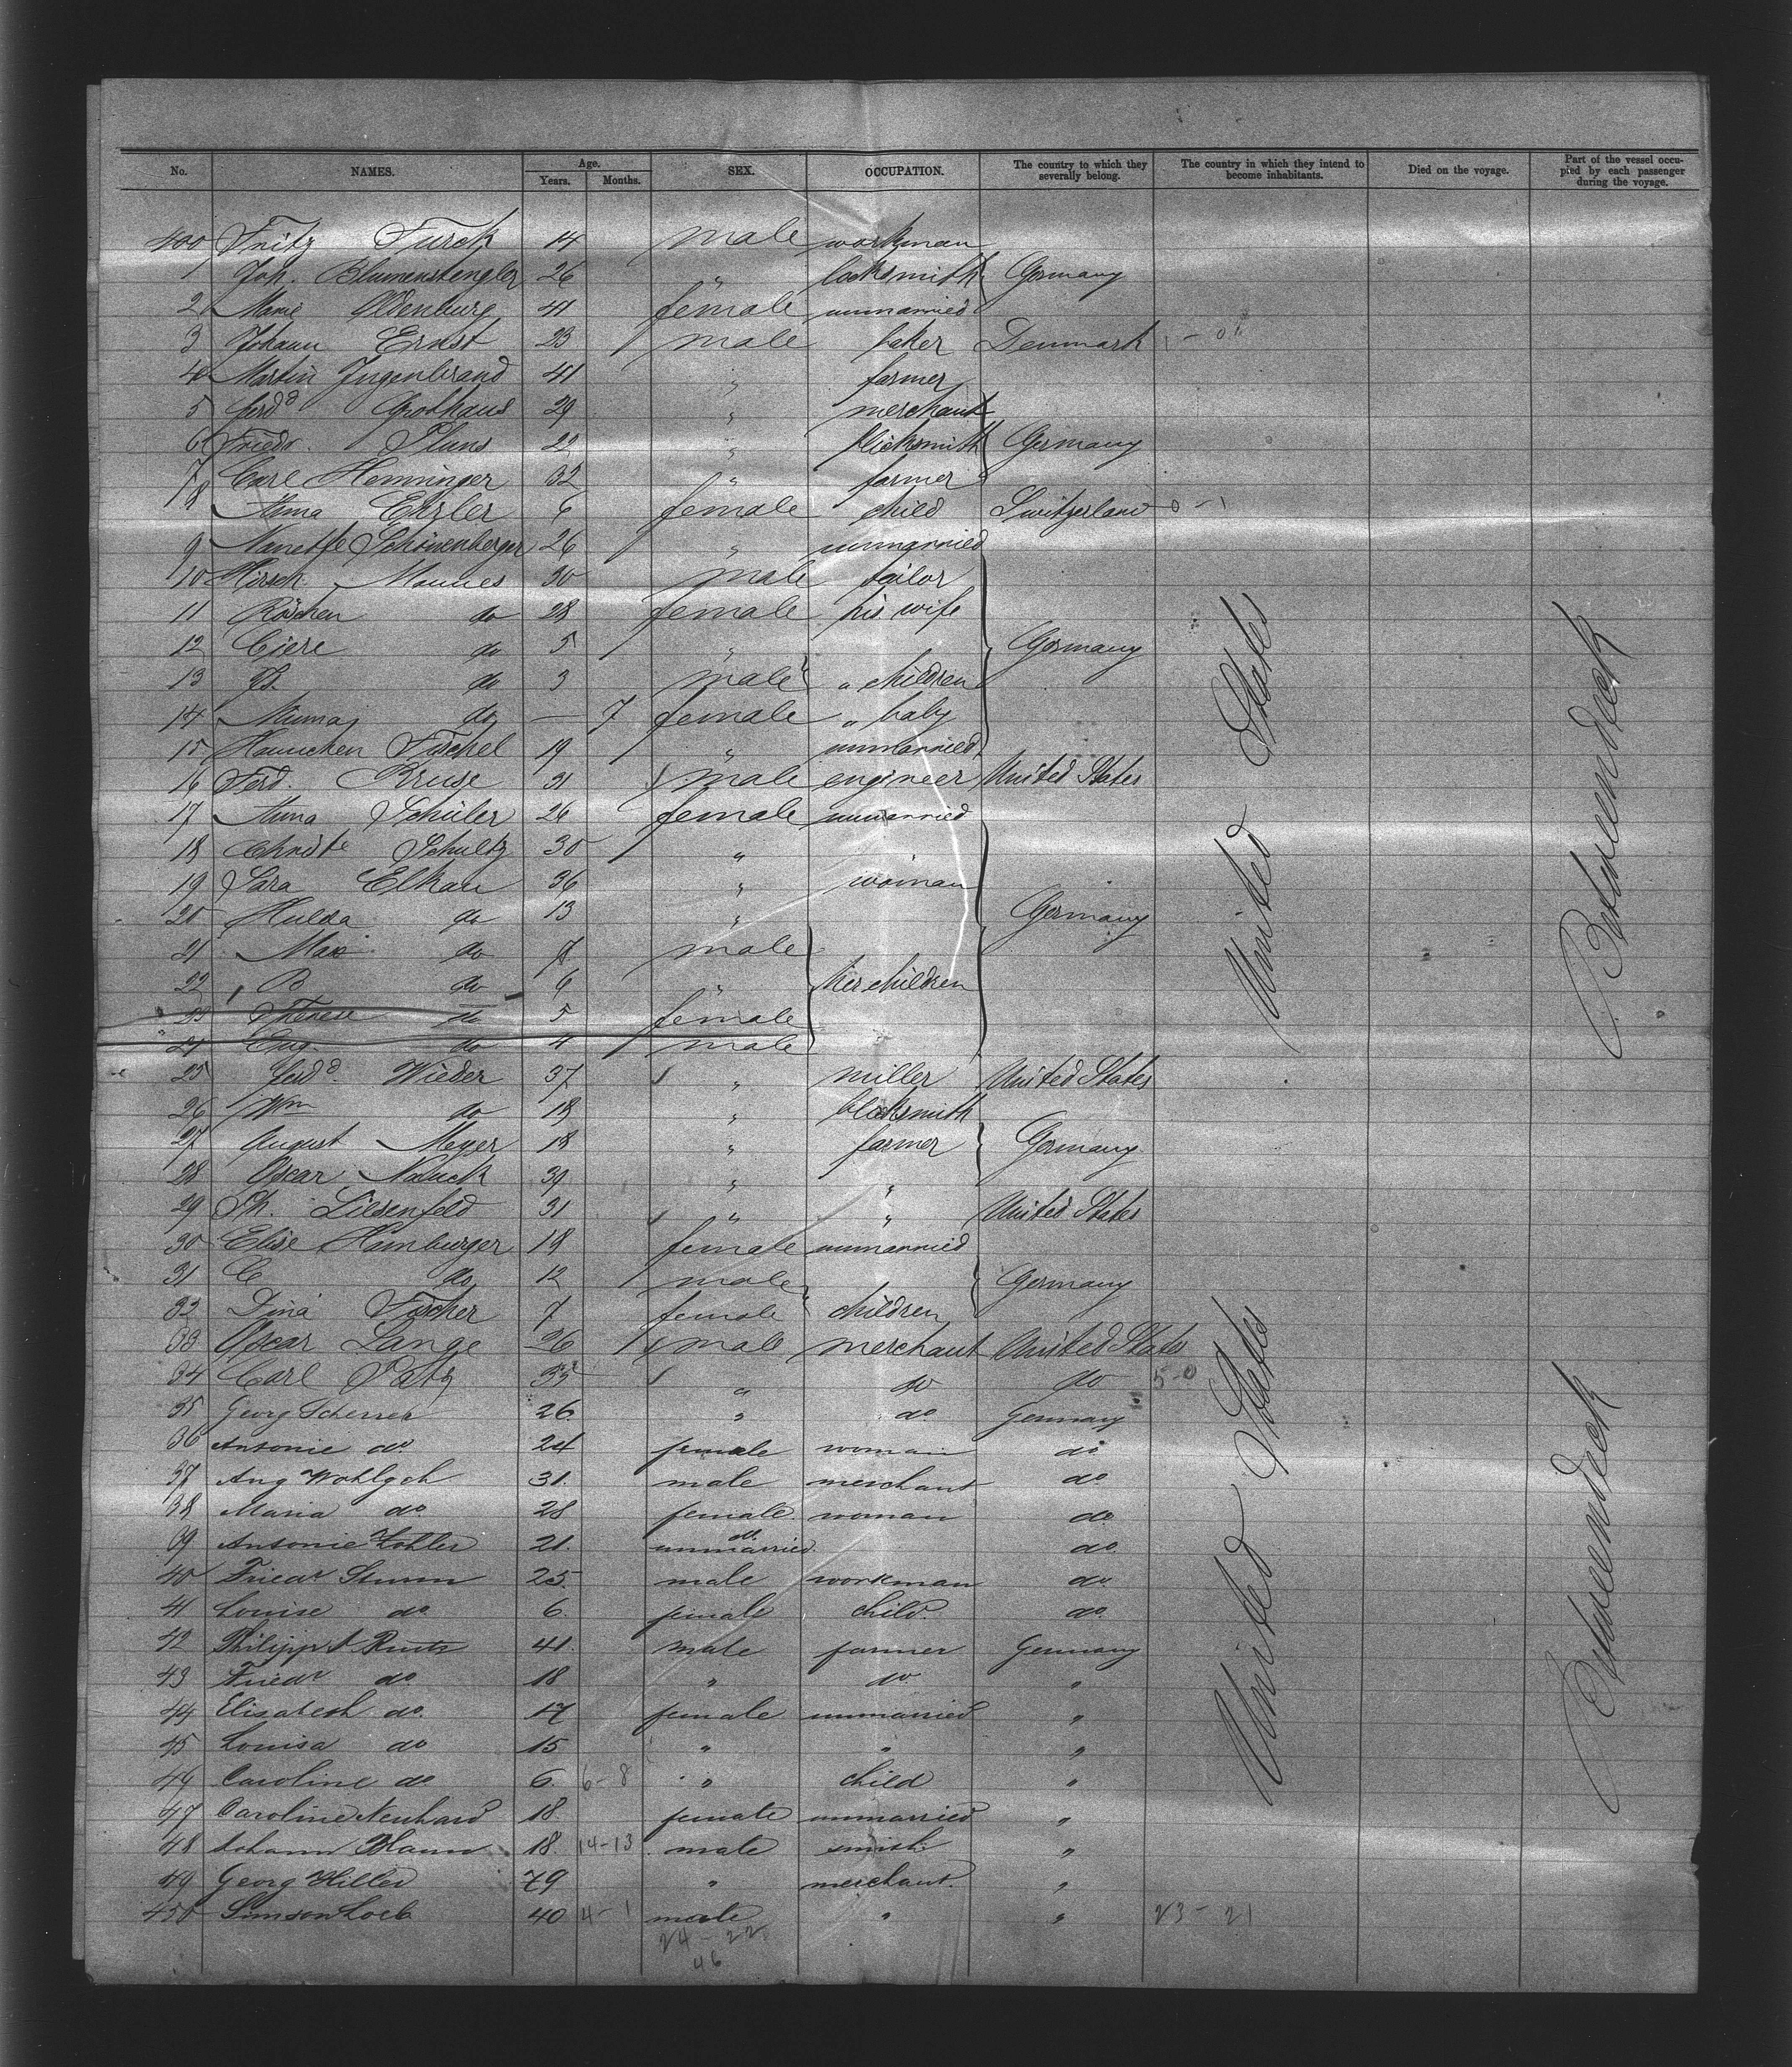 No. NAMES. Age. Years. Months. SEX. OCCUPATION. The country to which they severally belong. The country in which they intend to become inhabitants. Died on the voyage. Part of the vessel occupied by each passenger during the voyage.
400 Fritz Turck 14 male workman
1 Joh. Blumenstengler 26 " locksmith Germany
2 Marie Oldenburg 41 female unmarried
3 Johann Ernst 23 male baker Denmark
4 Martin Jugenbrand 41 " farmer
5 Ferd Grothaus 29 " merchant
6 Friedr. Pluns 22 " Germany
7 Carl Henninger 32 " farmer
8 Anna Enzler 6 female child Switzerland 0 - 1
9 Nanette 26 " unmarried
10 Hirsch Mannes 30 male tailor
11 Röschen do 28 female his wife
12 do 5 " Germany
13 B. do 3 male " children
14 do — 7 female " baby
15 Hannchen Fischel 19 " unmarried
16 Ferd. Kruse 31 male engineer United States
17 Anna Schüler 26 female unmarried
18 Christe Schultz 30 "
19 Sara Elkau 36 " woman
20 Hulda do 13 " Germany
21 Max do male
22 B do 6 " her children
23 Therese do 5 female
24 Eug do 4 male
25 Ferd Wieder 37 " miller United States
26 Wm do 18 " locksmith
27 August Meyer 18 " farmer Germany
28 Oscar 39 " "
29 Ph. Liesenfeld 31 " " United States
30 Elise Hamburger 18 female unmarried
31 C do 12 male Germany
32 Dina Fischer 7 female children
33 Oscar Lange 26 male merchant United States
34 Carl Patz 35 " do do 5-0
35 Georg Scherrer 26 " do Germany
36 Antonie do 24 female woman do
37 Aug 31. male merchant do
38 Maria do 28 female woman do
39 Antonie Kohler 21. do. unmarried do
40 Friedr Sturm 25. male workman do
41 Louise do 6. female child. do.
42 Philipp 41. male farmer Germany
43 Friedr do 18 " do "
44 Elisabeth do. 17 female unmarried "
45 Louisa do 15 " " "
46 Caroline do 6. 6-8 " child "
47 Caroline Neuhard 18. female unmarried "
48 Johann 18. 14-13 male smith "
49 Georg Hiller 79 " merchant. "
450 Simson Loeb 40 4-1 male " " 23-21
24-22
46
United States
United States
Betweendeck
Betweendeck